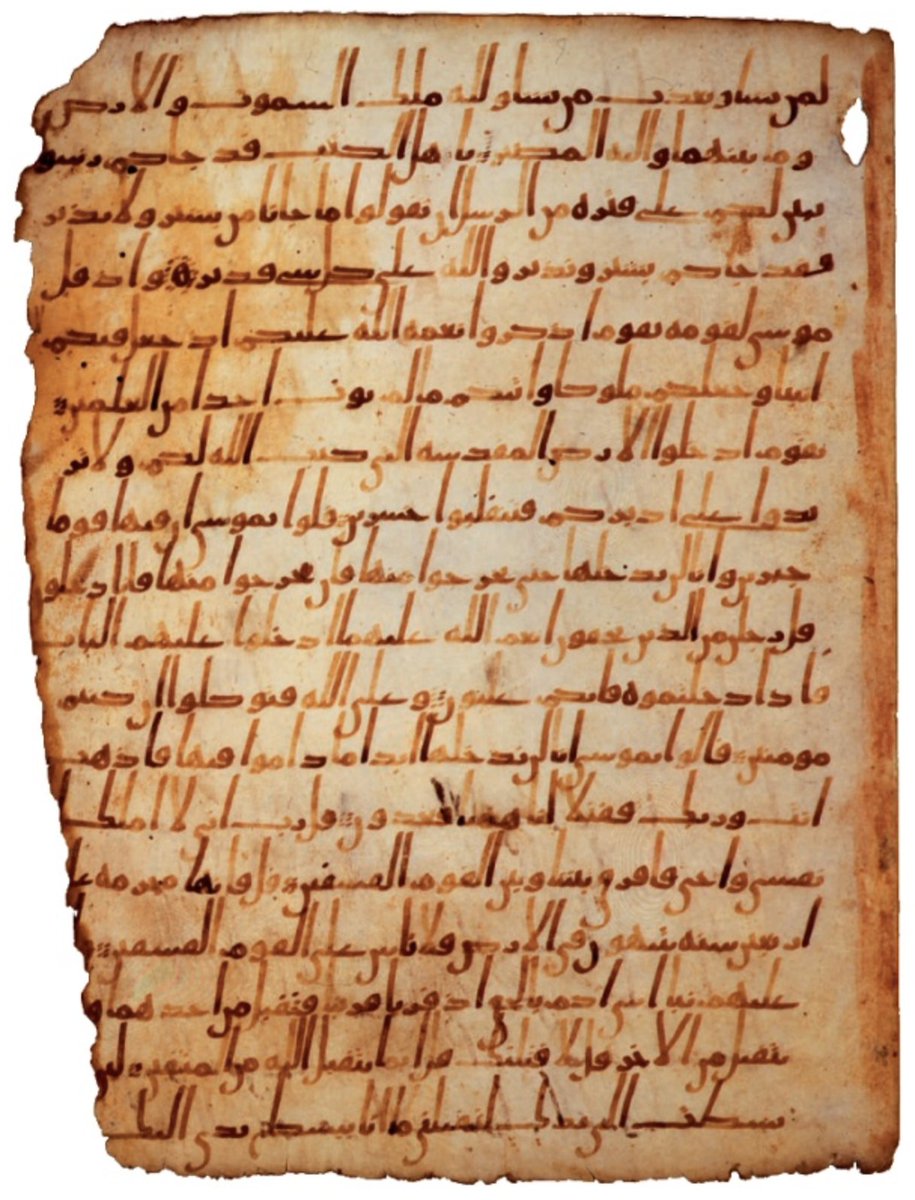 لمن يشا ويعذب من يشا ولله ملك السموت والارض
وما بينهما واليه المصير ياهل الكتب قد جاكم رسو
يبين لكم على فتره من الرسل ان تقولوا ما جانا من بشير ولا نذير
فقد جاكم بشير ونذير والله على كل شي قدير واذ قل
موسى لقومه يقوم اذكروا نعمه الله عليكم اذ جعل فيكم
انبيا وجعلكم ملوكا واتيكم ما لم يوت احدا من العلمين
يقوم ادخلوا الارض المقدسه التي كتب الله لكم ولا تر
تدوا على ادبركم فتنقلبوا خسرين قلوا يموسى ان فيها قوما
جبرين وانا لن ندخلها حتى يخرجوا منها فان يخرجوا منها فانا دخلو
قل رجلن من الذين يخفون انعم الله عليهما ادخلوا عليهم الباب
فاذا دخلتموه فانكم غلبون وعلى الله فتوكلوا ان كنتم
مومنين قالوا يموسى انا لن ندخلها ابدا ما داموا فيها فاذهب
انت وربك فقتلا انا ههنا قعدون قل رب اني لا املك
نفسي واخي فافرق بيننا وبين القوم الفسقين قل فانها محرمه عل
اربعين سنه يتيهون في الارض فلا تاس على القوم الفسقين و
عليهم نبا ابني ادم بالحق اذ قربا قربنا فتقبل من احدهما و
يتقبل من الاخر قل لاقتلنك قل انما يتقبل الله من المتقين لين
بسطت الي يدك لتقتلني ما انا ببسط يدي اليك